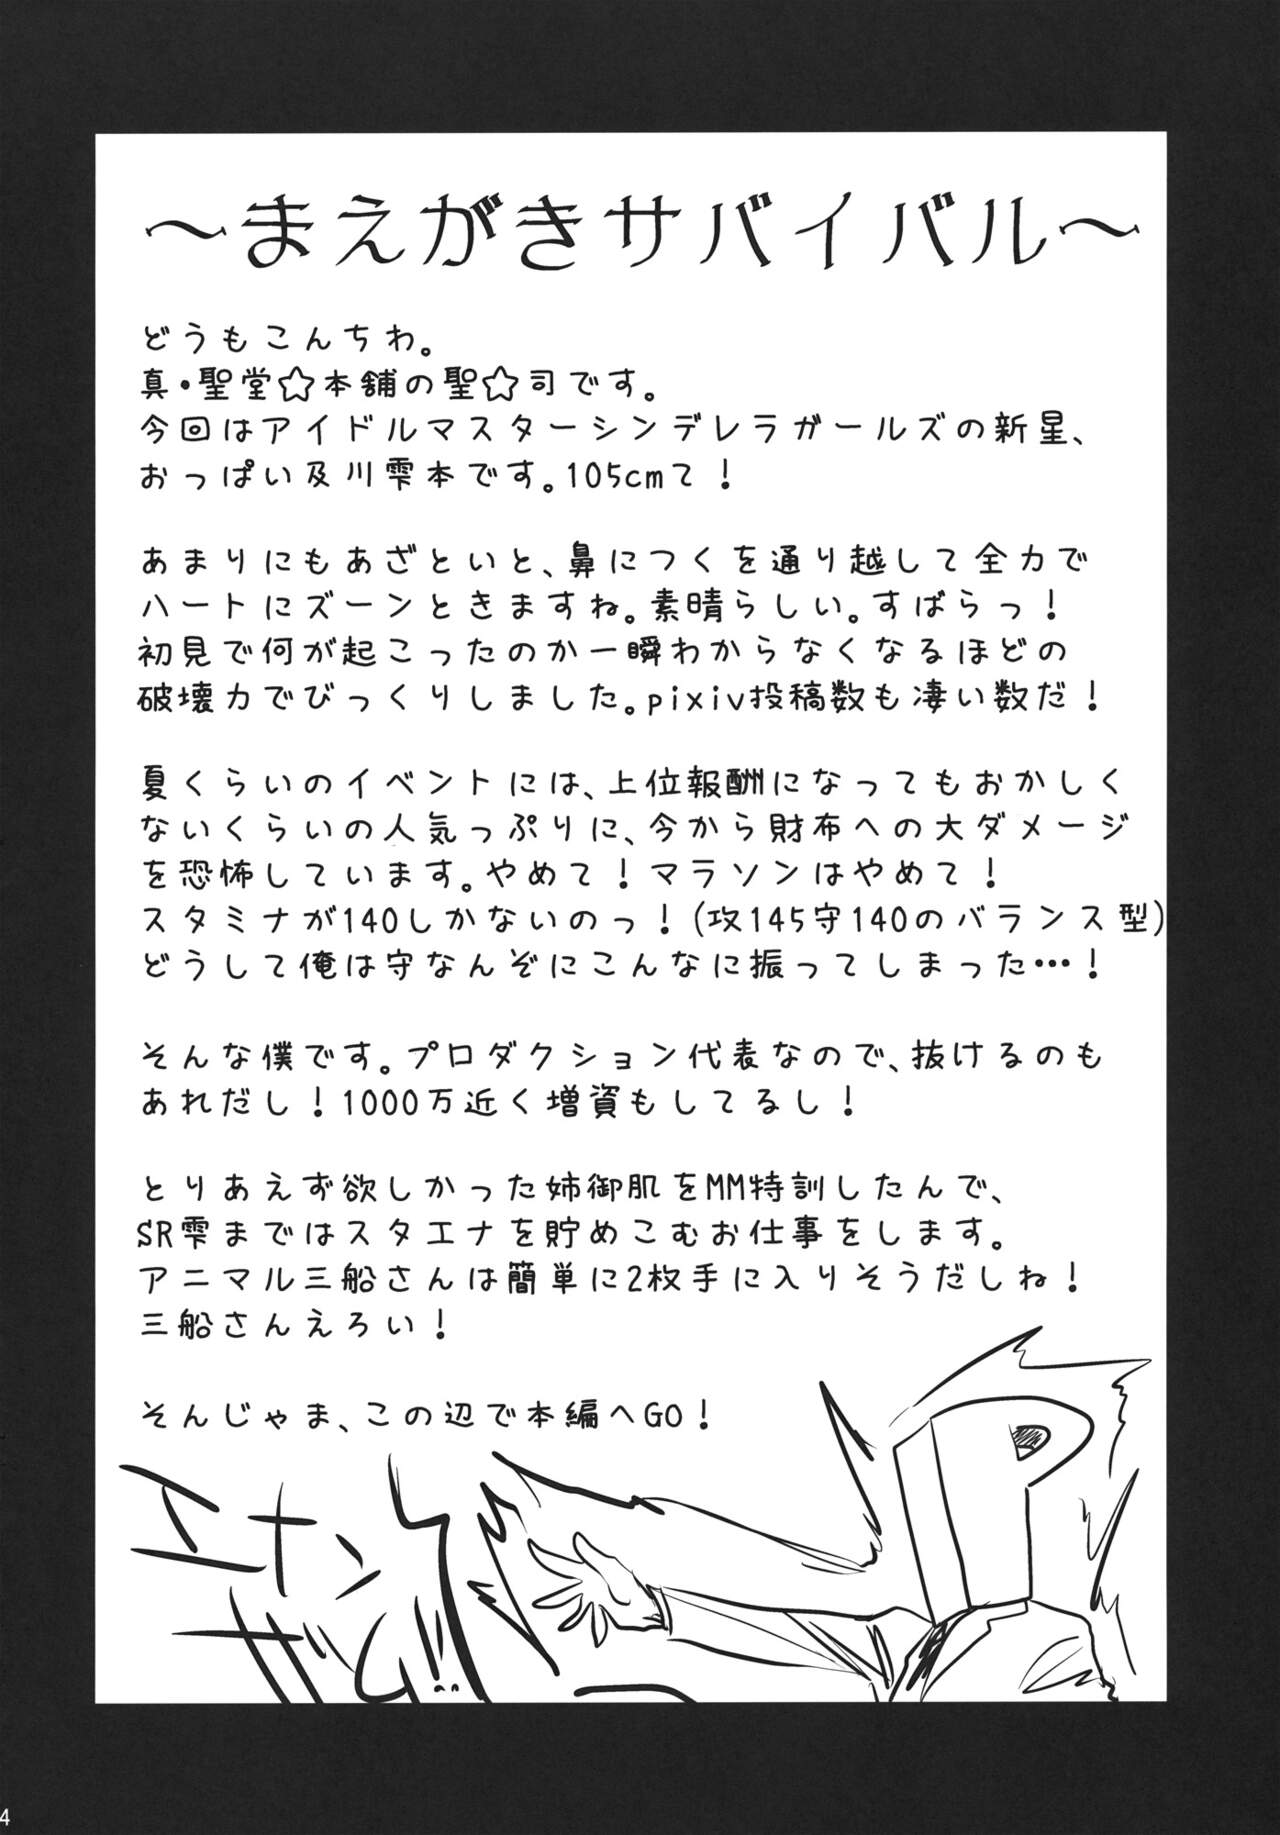 ～まえがきサバイバル～
どうもこんちわ。
真・聖堂☆本舗の聖☆司です。
今回はアイドルマスターシンデレラガールズの新星、
おっぱい及川雫本です。105cmて！
あまりにもあざといと、鼻につくを通り越して全力で
ハートにズーンときますね。素晴らしい。すばらっ！
初見で何が起こったのか一瞬わからなくなるほどの
破壊力でびっくりしました。pixiv投稿数も凄い数だ！
夏くらいのイベントには、上位報酬になってもおかしく
ないくらいの人気っぷりに、今から財布への大ダメージ
を恐怖しています。やめて！マラソンはやめて！
スタミナが140しかないのっ！(攻145守140のバランス型)
どうして俺は守なんぞにこんなに振ってしまった…！
そんな僕です。プロダクション代表なので、抜けるのも
あれだし！1000万近く増資もしてるし！
とりあえず欲しかった姉御肌をMM特訓したんで、
SR雫まではスタエナを貯めこむお仕事をします。
アニマル三船さんは簡単に2枚手に入りそうだしね！
三船さんえろい！
そんじゃま、この辺で本編へGO！
エナン
4